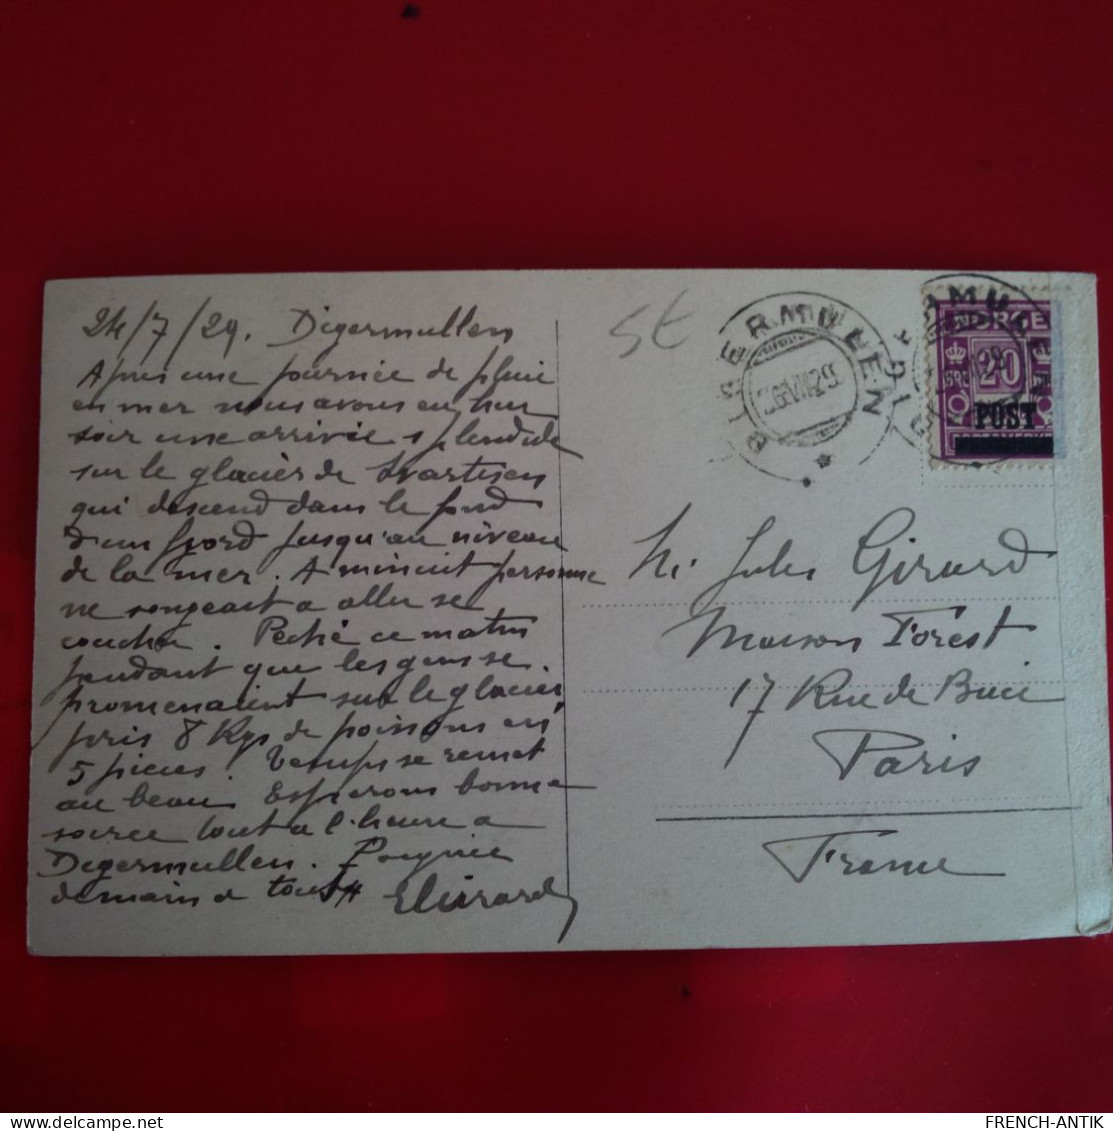 24/7/29. Digermullen
Apres une journée de pluie
en mer nous avons eu hier
soir une arrivée splendide
sur le glacier de Svartisen
qui descend dans le fond
d'un fjord jusqu'au niveau
de la mer. A minuit personne
ne songeait a aller se
coucher. Peché ce matin
pendant que les gens se
promenaient sur le glacier
pris 8 Kgs de poissons en
5 pieces. Temps se remet
au beau Esperons bonne
soiree tout a l'heure a
Degermullen. Poignée
demain a tous
EGirard
5t
DIGERMULEN
26 VII 29
DIGERMULEN
NORGE
20
ØRE
POST
M. Jules Girard
Maison Forest
17 Rue de Buci
Paris
France
FRENCH-ANTIK